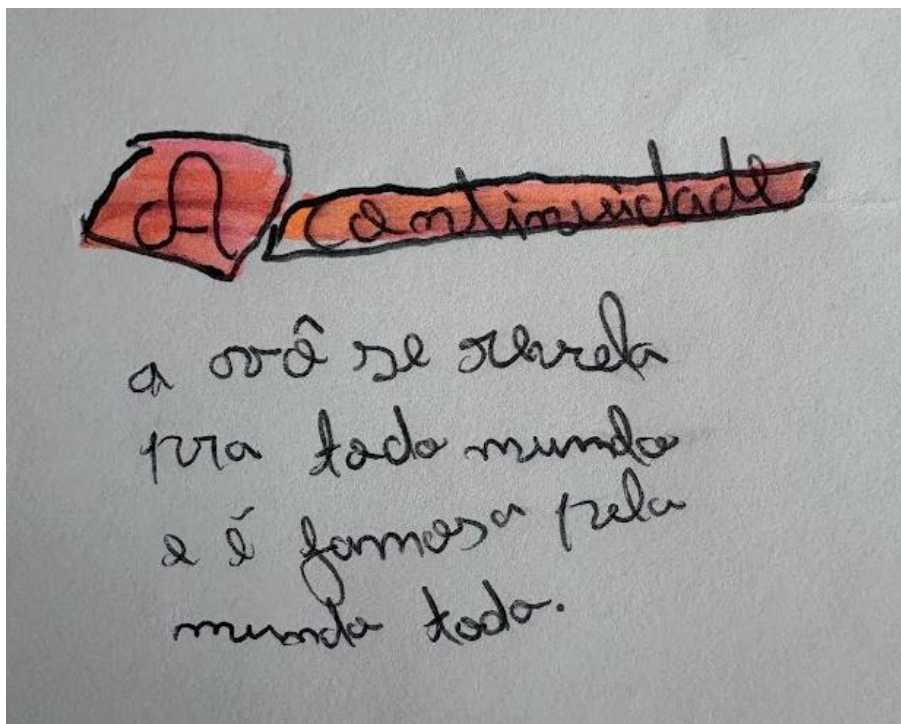 A continuidade
a vovó se revela
pra todo mundo
e é famosa pelo
mundo todo.